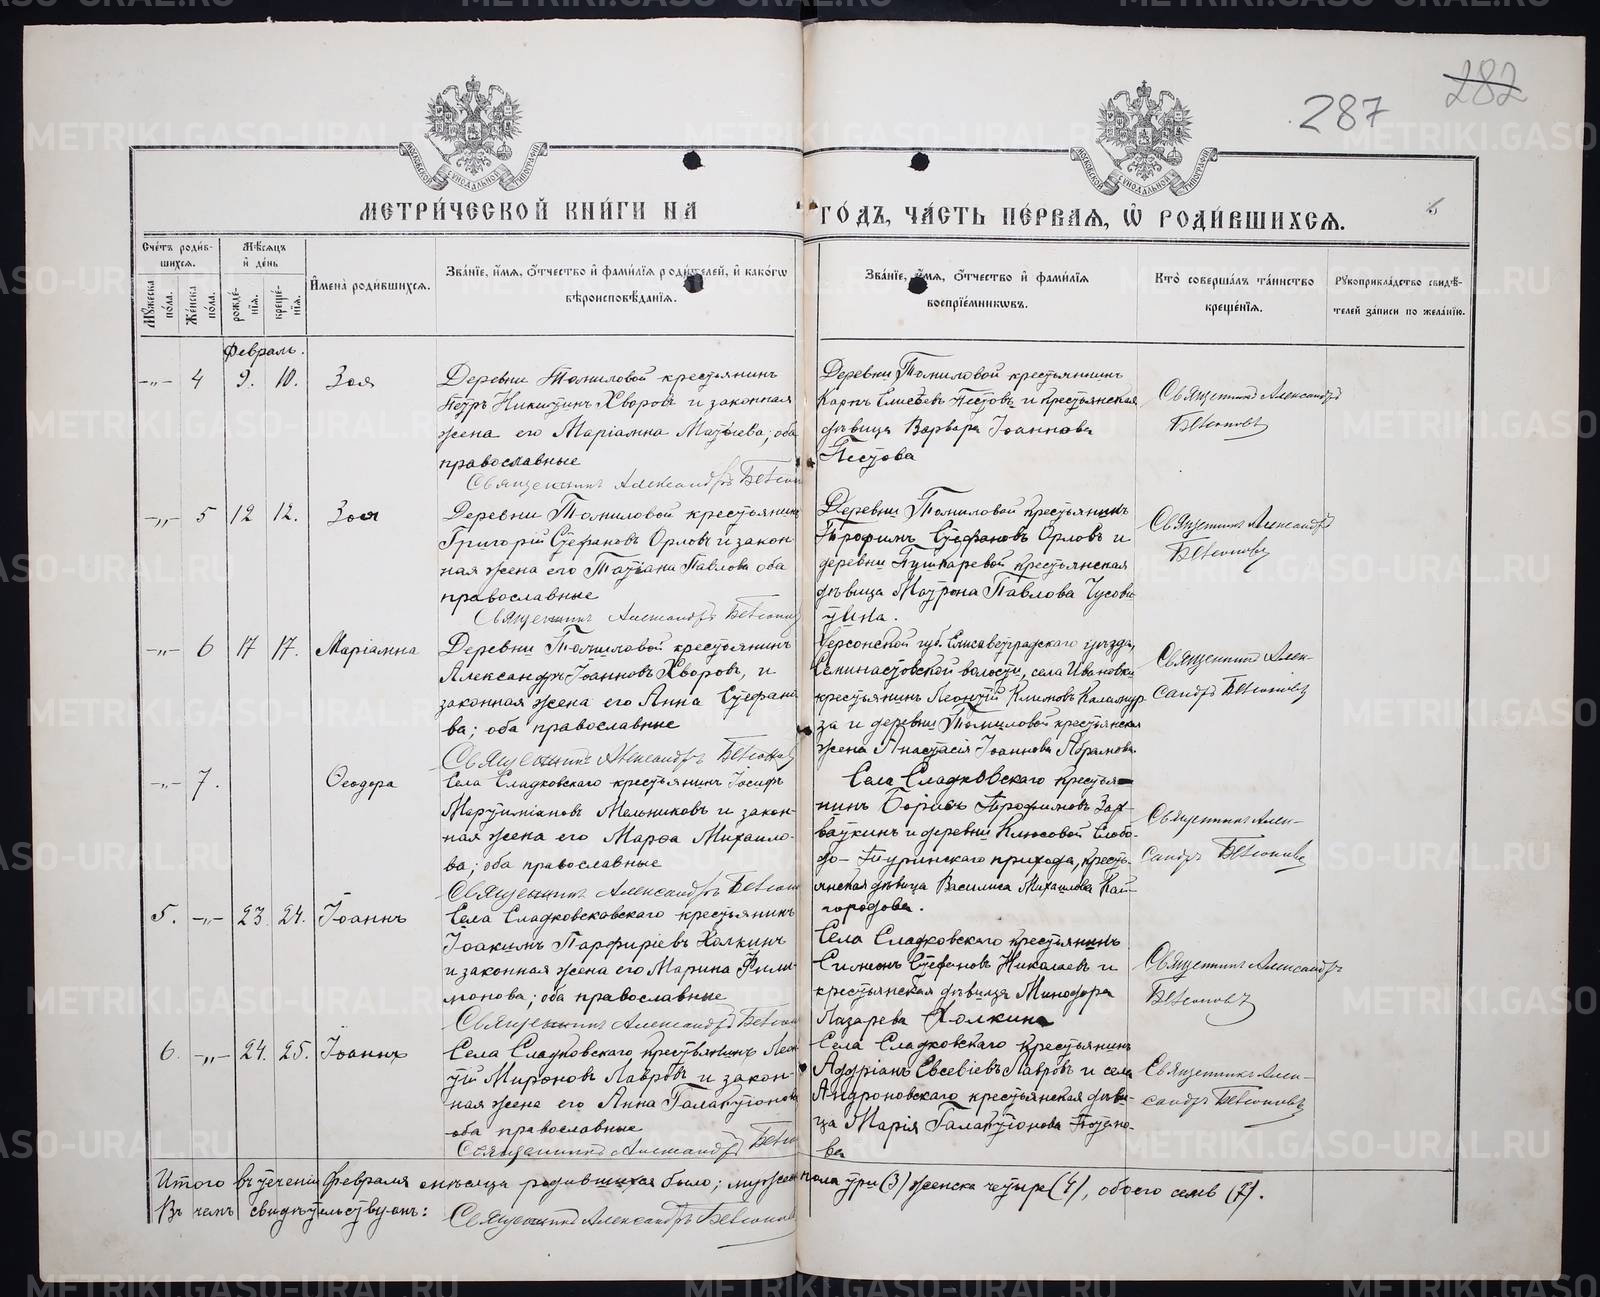 287
282
МЕТРИ́ЧЕСКОЙ КНИ́ГИ НА ГО́ДЪ, ЧА́СТЬ ПЕ́РВАЯ, Ѽ РОДИ́ВШИХСЯ.
Сче́тъ роди́вшихся.
Мѣ́сяцъ и҆ де́нь
И҆мена̀ роди́вшихся.
Зва́нїе, и҆́мя, ѻ҆́тчество и҆ фами́лїя роди́телей, и҆ како́гѡ вѣроисповѣ́данїя.
Зва́нїе, и҆́мя, ѻ҆́тчество и҆ фами́лїя воспрїе́мниковъ.
Кто̀ соверша́лъ та́инство креще́нїя.
Рукоприкла́дство свидѣ́телей за́писи по жела́нїю.
Му́жеска по́ла.
Же́нска по́ла.
рожде́нїя.
креще́нїя.
Февраль.
-„- 4 9. 10. Зоя
Деревни Томиловой крестьянинъ
Петръ Никитинъ Хворовъ и законная
жена его Маріамна Матѳіева; оба
православные
Священникъ Александръ
Деревни Томиловой крестьянинъ
Карпъ Елисѣевъ Пестовъ и крестьянская
дѣвица Варвара Іоаннова
Пестова
Священникъ Александръ
-„- 5 12 12. Зоя
Деревни Томиловой крестьянинъ
Григорій Стефановъ Орловъ и закон-
ная жена его Татіана Павлова оба
православные
Священникъ Александръ
Деревни Томиловой крестьянинъ
Трофимъ Стефановъ Орловъ и
деревни Пушкаревой крестьянская
дѣвица Матрона Павлова Чусови
тина.
Священникъ Александръ
-„- 6 17 17. Маріамна
Деревни Томиловой крестьянинъ
Александръ Іоанновъ Хворовъ, и
законная жена его Анна Стефано
ва; оба православные
Священникъ Александръ
Херсонской губ. Елисаветградскаго уѣзда,
волости, села Ивановки
крестьянинъ Леонтій Климовъ
за и деревни Томиловой крестьянская
жена Анастасія Іоаннова Абрамова
Священникъ Алек-
сандръ
-„- 7. Ѳеодора
Села Сладковскаго крестьянинъ Іосифъ
Мартиніановъ Мельниковъ и закон-
ная жена его Марѳа Михаило-
ва; оба православные
Священникъ Александръ
Села Сладковскаго крестья-
нинъ Борисъ Трофимовъ Зах-
ваткинъ и деревни Клюсовой Слобо-
до-Туринскаго прихода, кресть-
янская дѣвица Василиса Михаилова Кай-
городова.
Священникъ Алек-
сандръ
5. -„- 23 24. Іоаннъ
Села Сладковсковскаго крестьянинъ
Іоакимъ Парфиріевъ Холкинъ
и законная жена его Марина Фили-
монова; оба православные
Священникъ Александръ
Села Сладковскаго крестьянинъ
Симеонъ Стефановъ Николаевъ и
крестьянская дѣвица Минодора
Лазарева Холкина
Священникъ Александръ
6. -„- 24. 25. Іоаннъ
Села Сладковскаго крестьянинъ Леон
тій Мироновъ Лавровъ и закон-
ная жена его Анна Галактіонова
оба православные
Священникъ Александръ
Села Сладковскаго крестьянинъ
Адріанъ Евсевіевъ Лавровъ и села
Андроновскаго крестьянская дѣви-
ца Марія Галактіонова
ва
Священникъ Алек-
сандръ
Итого въ теченіи февраля мѣсяца родившихся было; мужеска пола три (3) женска четыре (4), обоего семь (7).
Въ чемъ свидѣтельствуютъ:
Священникъ Александръ